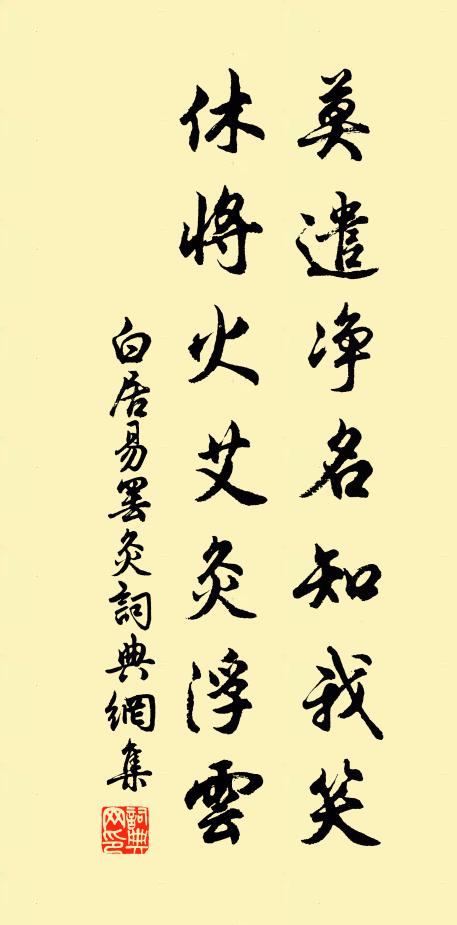 莫遣净名知我笑
休將火艾灸浮雲
白居易罢灸詞典網集
詞典网印